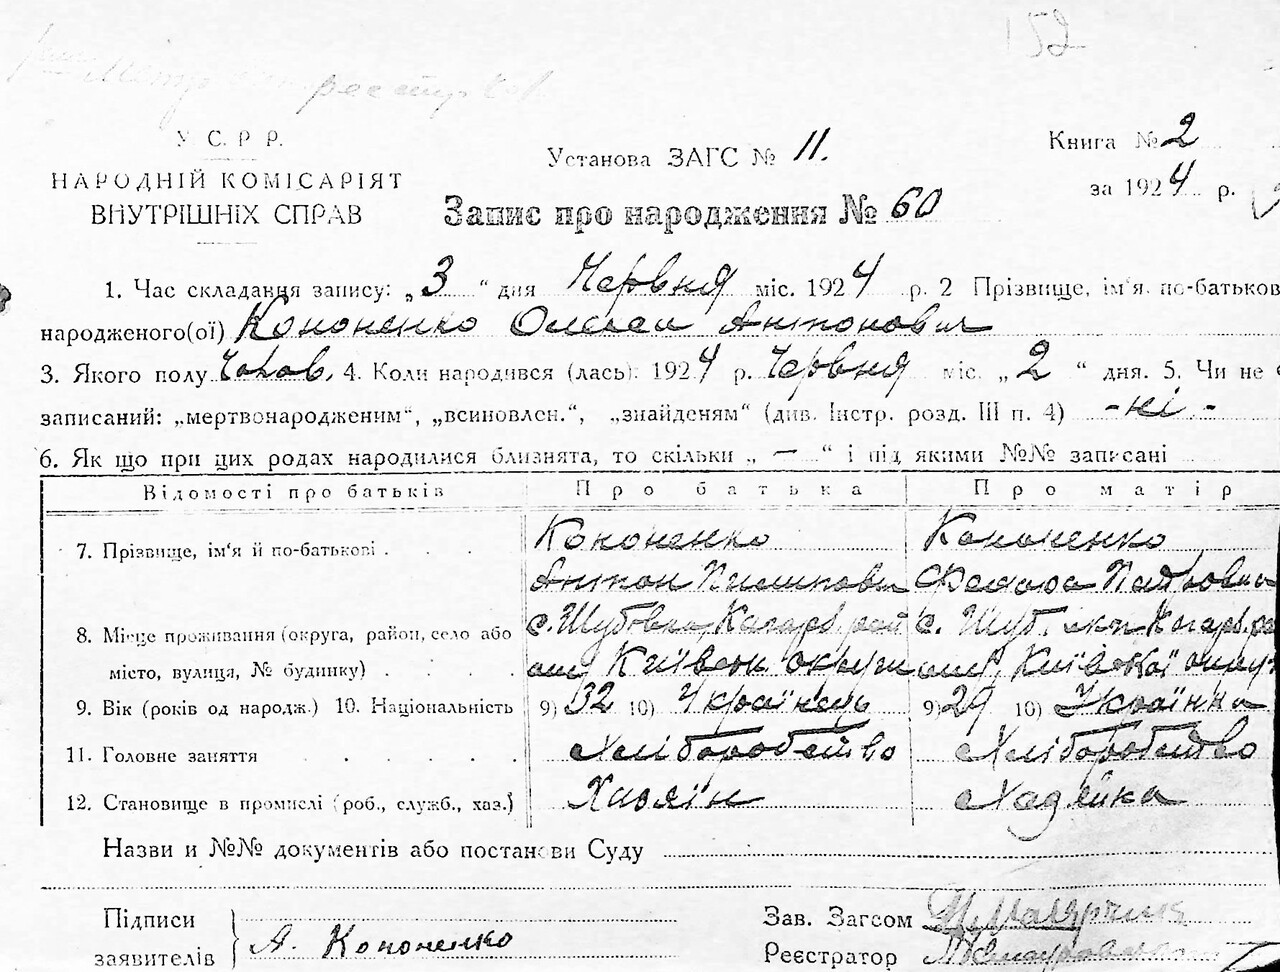 152
У. С. Р. Р.
НАРОДНІЙ КОМІСАРІЯТ
ВНУТРІШНІХ СПРАВ
Установа ЗАГС № 11.
Книга № 2
за 1924 р.
Запис про народження № 60
1. Час складання запису: „3“ дня Червня міс. 1924 р. 2 Прізвище, ім'я, по-батькові
народженого(ої) Кононенко Олекси Антонович
3. Якого полу Чолов. 4. Коли народився (лась): 1924 р. Червня міс. „2“ дня. 5. Чи не є
записаний: „мертвонародженим“, „всиновлен.“, „знайденям“ (див. Інстр. розд. III п. 4) -ні-
6. Як що при цих родах народилися близнята, то скільки „ — “ і під якими №№ записані
Відомості про батьків Про батька Про матір
7. Прізвище, ім'я й по-батькові Кононенко Кононенко
Антон Пилипович Федора Петровна
8. Місце проживання (округа, район, село або с. Шубовка Кагарл. рай с. Шуб.
місто, вулиця, № будинку) Київськ округи Київської округ
9. Вік (років од народж.) 10. Національність 9) 32 10) Українець 9) 29 10) Українка
11. Головне заняття Хліборобство Хліборобство
12. Становище в промислі (роб., служб., хаз.) Хазяїн Хазяйка
Назви и №№ документів або постанови Суду
Підписи
заявителів А. Кононенко
Зав. Загсом
Реєстратор